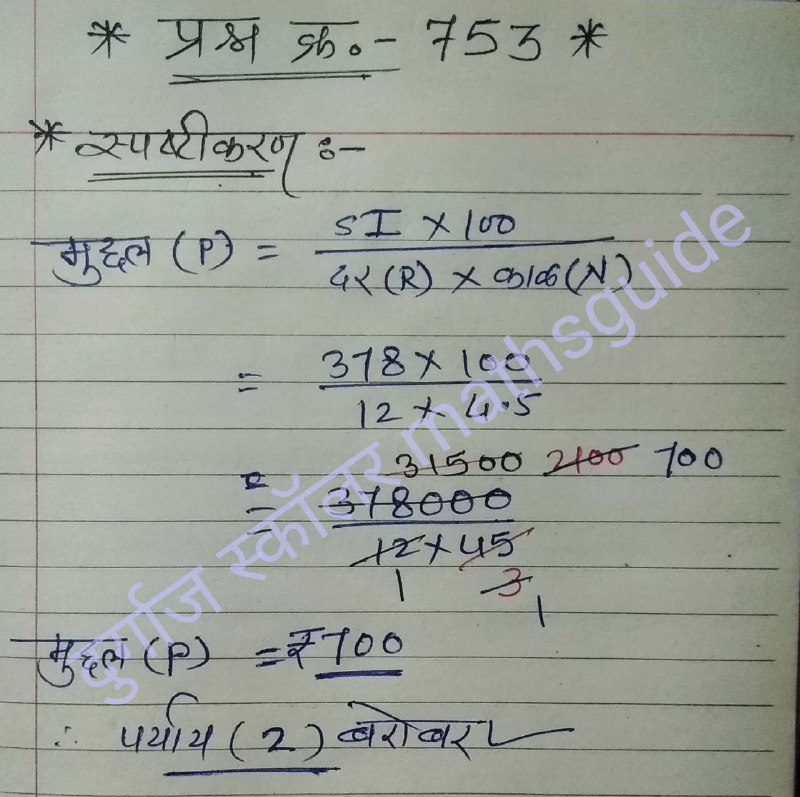 * प्रश्न क्र.- 753 *
* स्पष्टीकरण :-
मुद्दल (P) = SI × 100
दर (R) × काळ (N)
= 378 × 100
12 × 4.5
31500 2100 700
= 378000
12 × 45
1 3
1
मुद्दल (P) = ₹ 700
∴ पर्याय (2) बरोबर
दुर्गाज स्कॉलर mathsguide